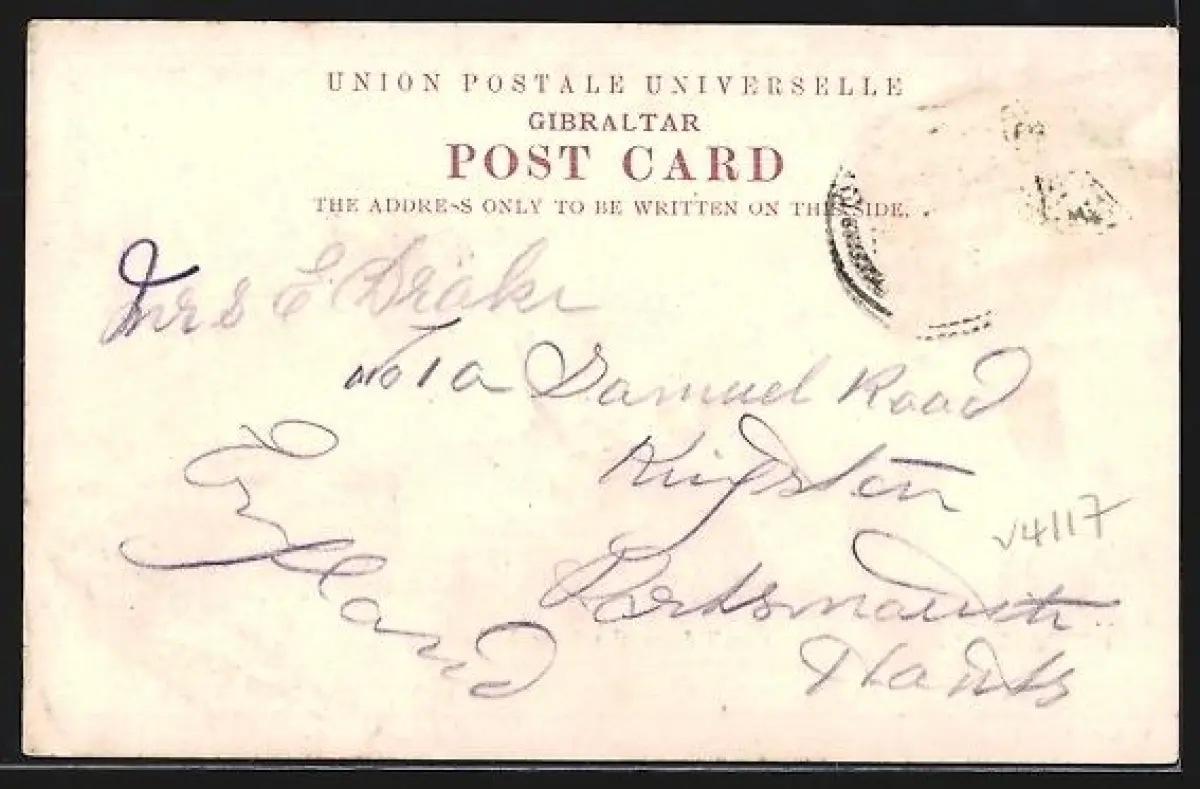 UNION POSTALE UNIVERSELLE
GIBRALTAR
POST CARD
THE ADDRESS ONLY TO BE WRITTEN ON THIS SIDE.
Mrs E Drake
No 1a Samuel Road
Kingston
Portsmouth
Hants
England
V4117